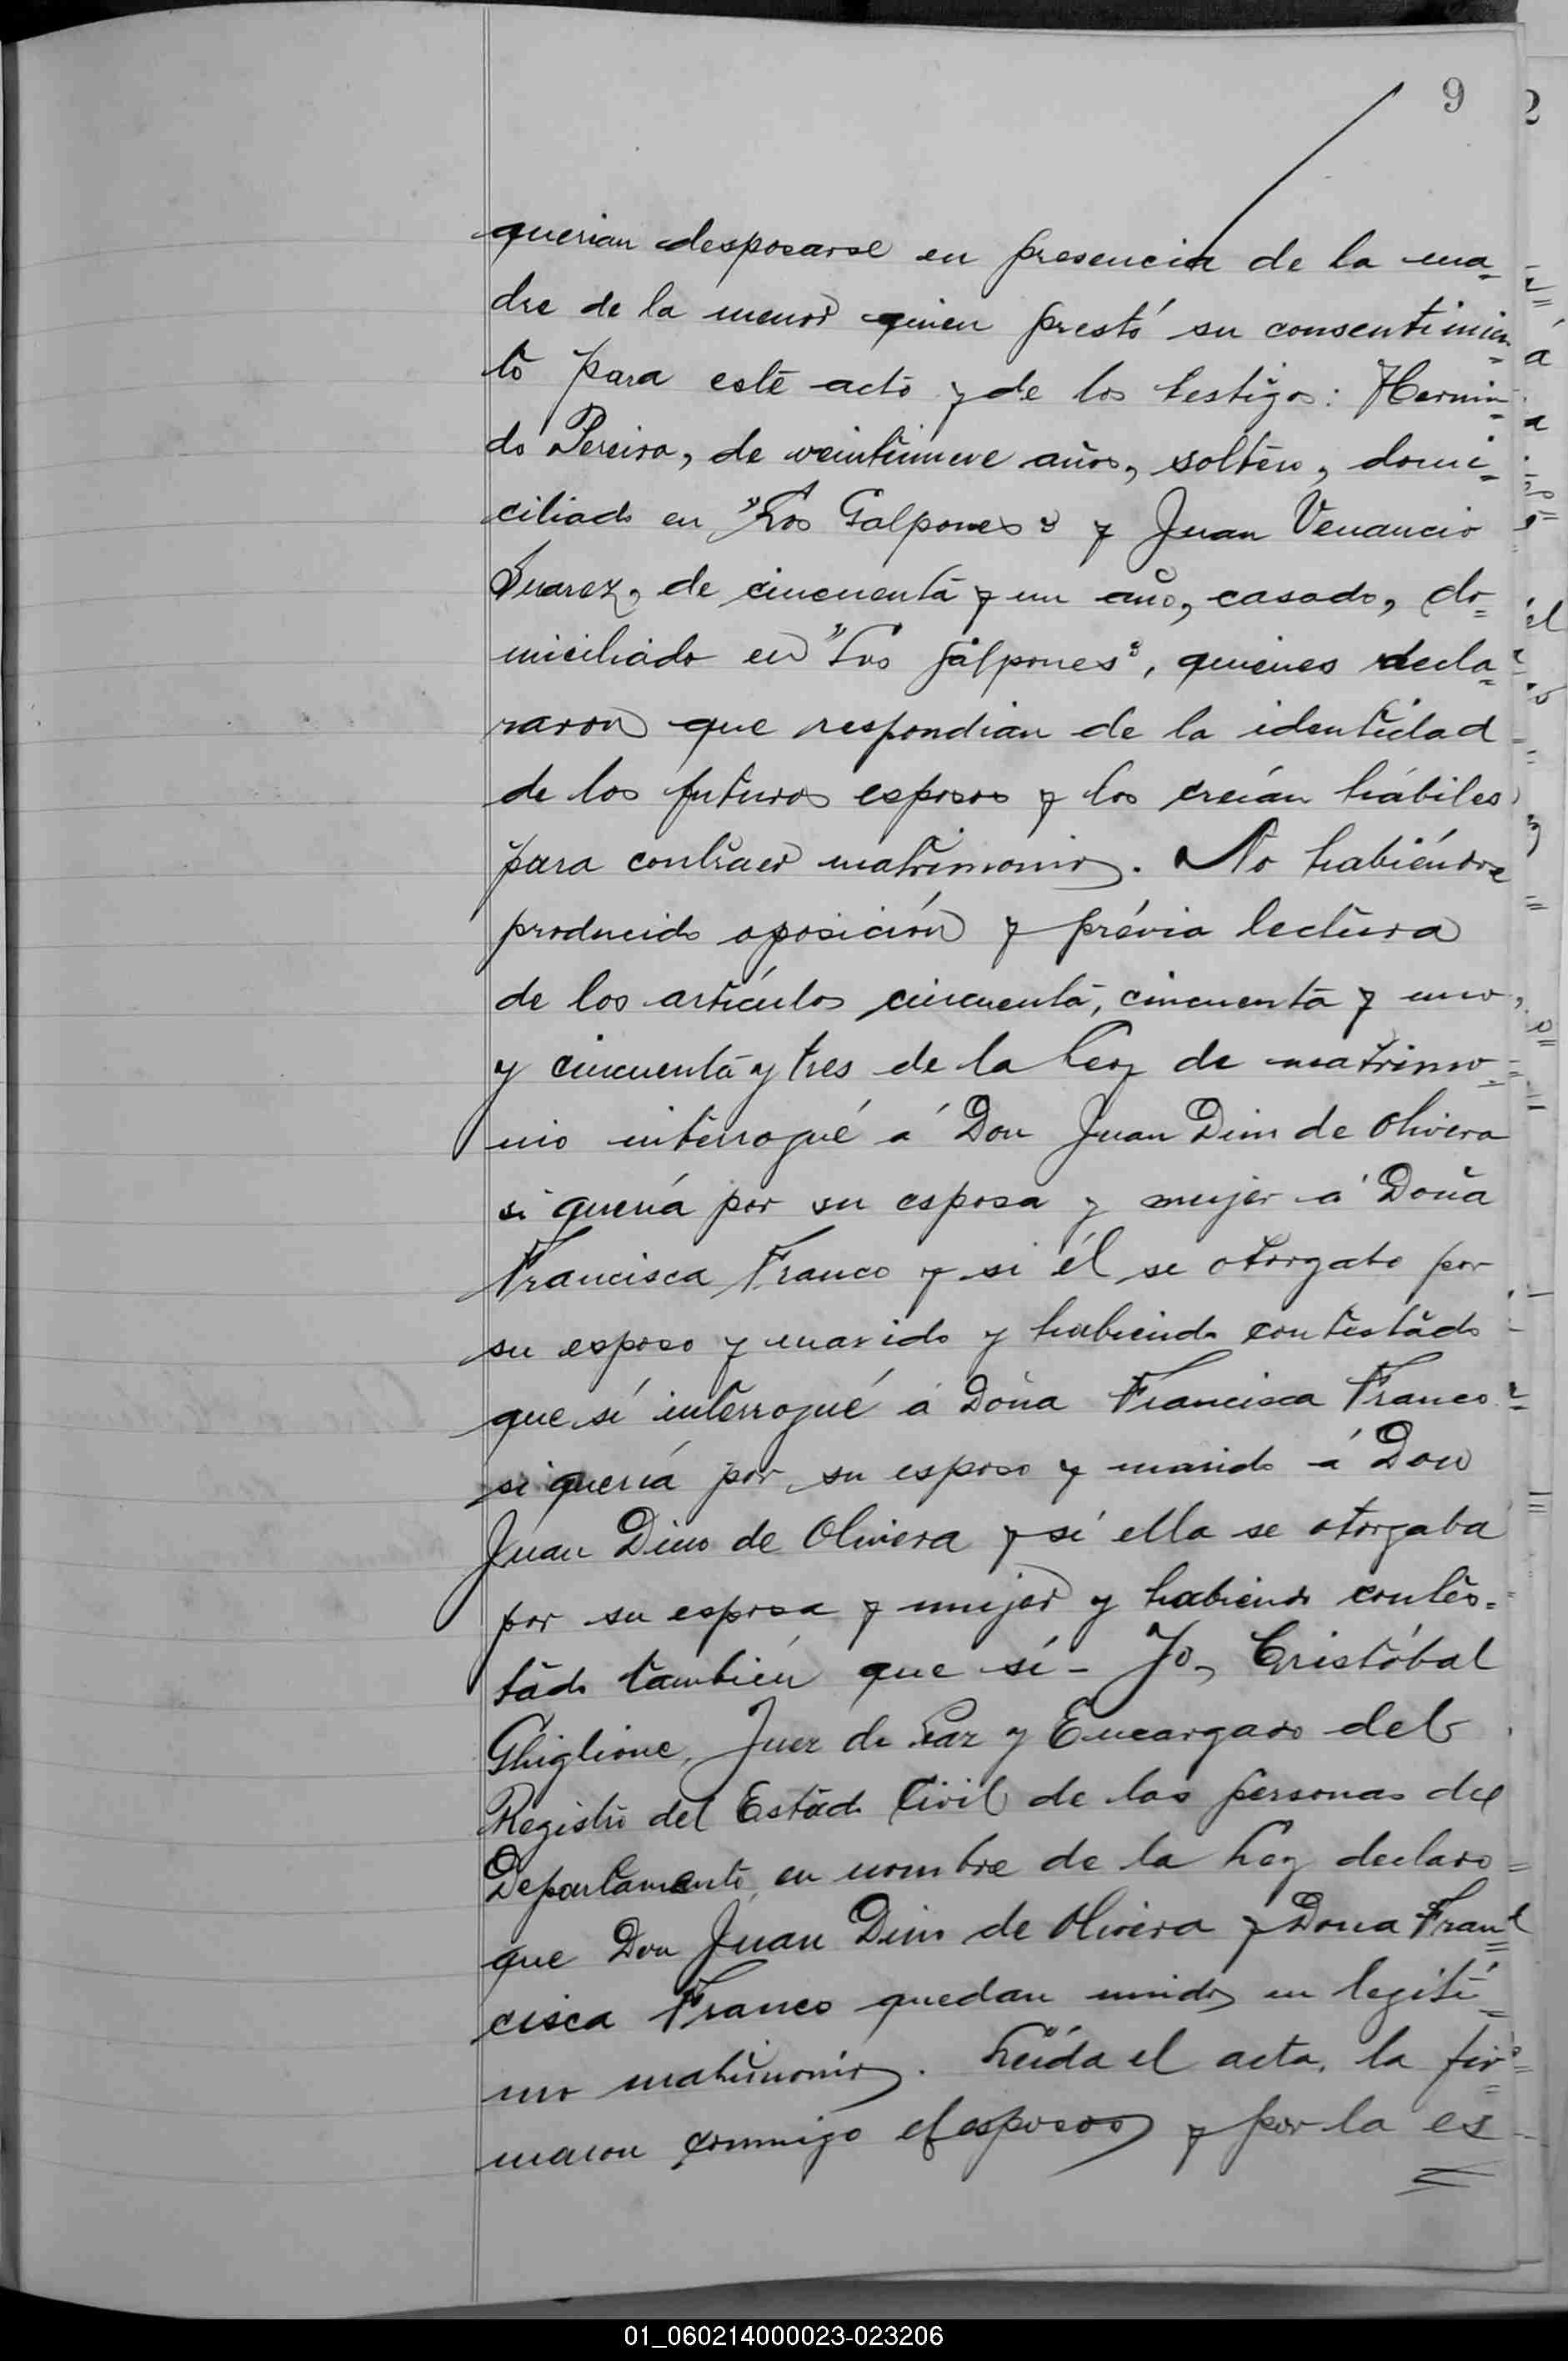 9
querian desposarse en presencia de la ma=
dre de la menor quien prestó su consentimien=
to para este acto y de los testigos: Hermin=
do Pereira, de veintinueve años, soltero, domi=
ciliado en "Los Galpones" y Juan Venancio
Suarez, de cincuenta y un año, casado, do=
miciliado en "Los galpones", quienes decla=
raron que respondian de la identidad
de los futuros esposos y los creían hábiles
para contraer matrimonio. No habiéndose
producido oposición y prévia lectura
de los artículos cincuenta, cincuenta y uno,
y cincuenta y tres de la Ley de matrimo=
nio interrogué á Don Juan Dino de Olivera
si quería por su esposa y mujer á Doña
Francisca Franco y si él se otorgabo por
su esposo y marido y habiendo contestado
que sí interrogué á Doña Francisca Franco
si quería por su esposo y marido á Don
Juan Dino de Olivera y sí ella se otorgaba
por su esposa y mujer y habiendo contes=
tado también que sí- Yo, Cristóbal
Ghiglione, Juez de Paz y Encargado del
Registro del Estado Civil de las personas del
Departamento, en nombre de la Ley declaro
que Don Juan Dino de Olivera y Dona Fran=
cisca Franco quedan unidos en legíti=
mo matrimonio. Leída el acta, la fir=
maron conmigo el esposo y por la es
=
01_060214000023-023206